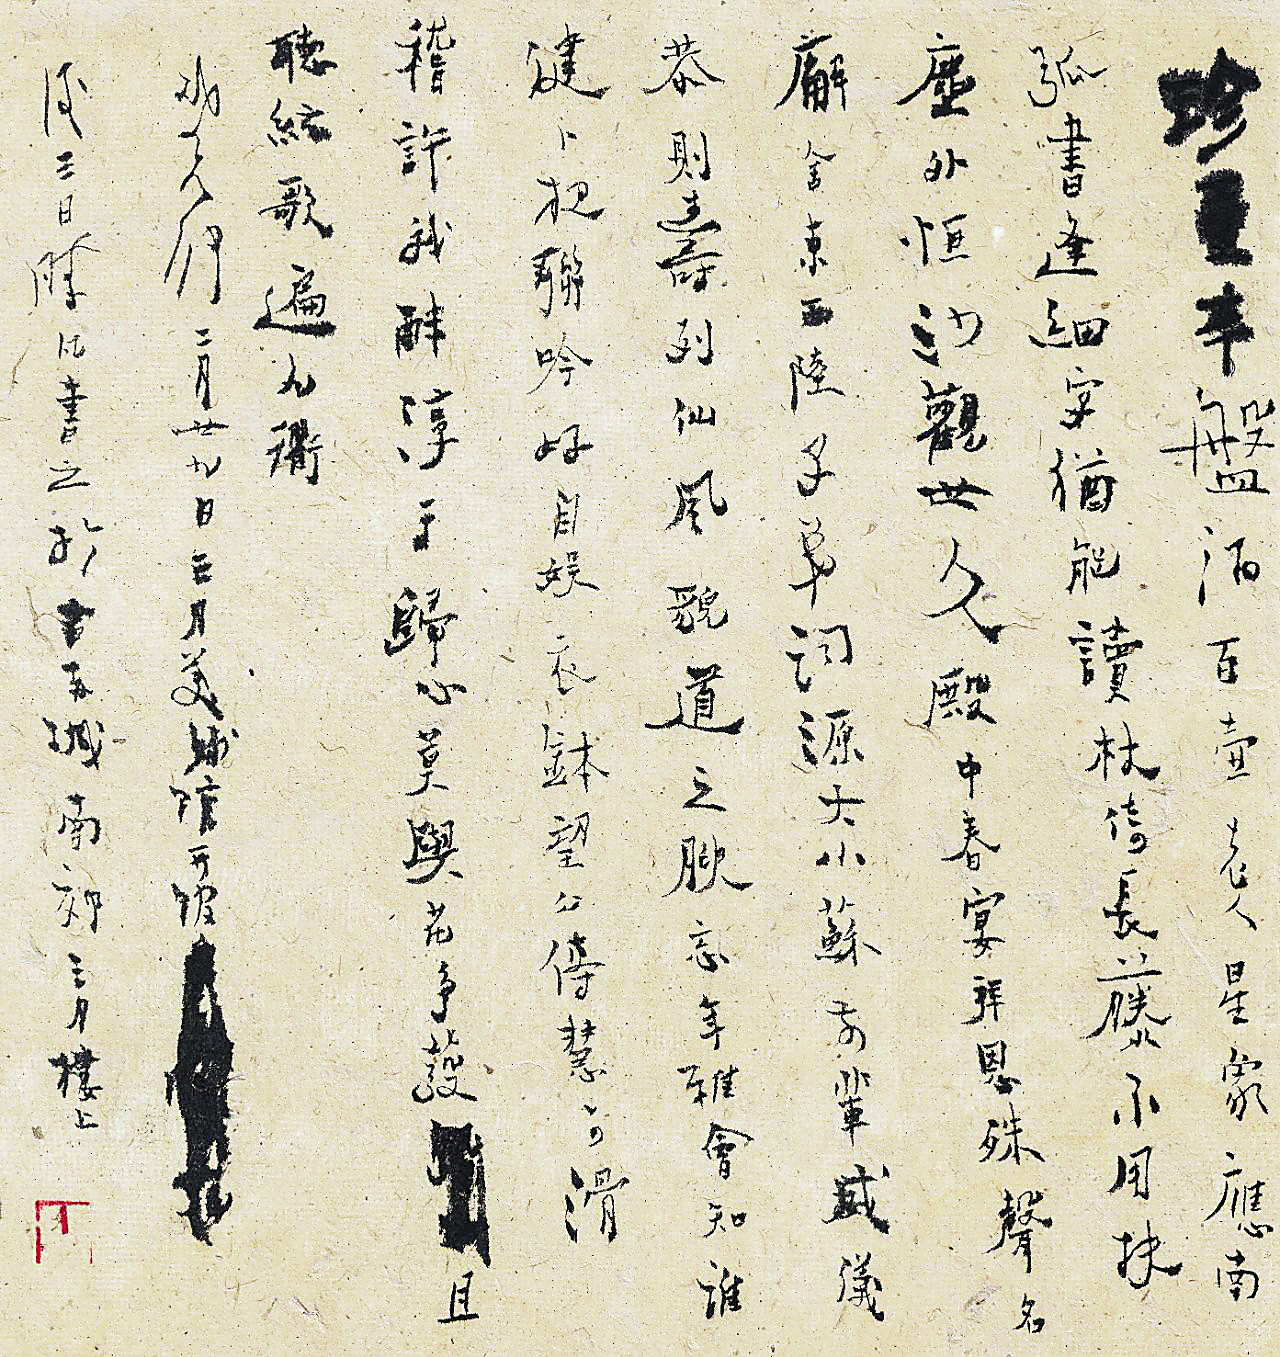 珍重辛盤酒百壺老人星象應南
弧書逢細字猶能讀杖倚長藤不用扶
塵外恒沙觀世久殿中春宴拜恩殊聲名
廨舍東西陸子弟詞源大小蘇前輩威儀
恭則壽列仙風貌道之腴忘年雅會知誰
健卜夜聯吟好自娛衣缽望公傳慧可滑
稽許我醉淳于歸心莫與花爭發且
聽絃歌遍九衢
二月廿九日三月美術館
後三日時以書之於古 南郊三月樓上